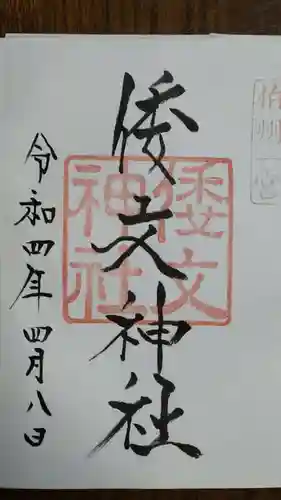 伯州一宮
倭文神社
倭文神社
令和四年四月八日